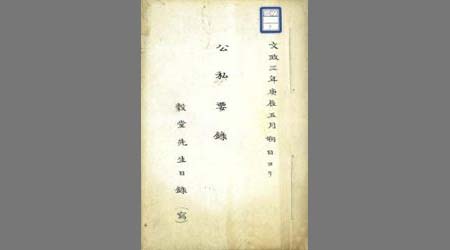 文政三年庚辰五月朔
公私要錄
穀堂先生日錄（寫）